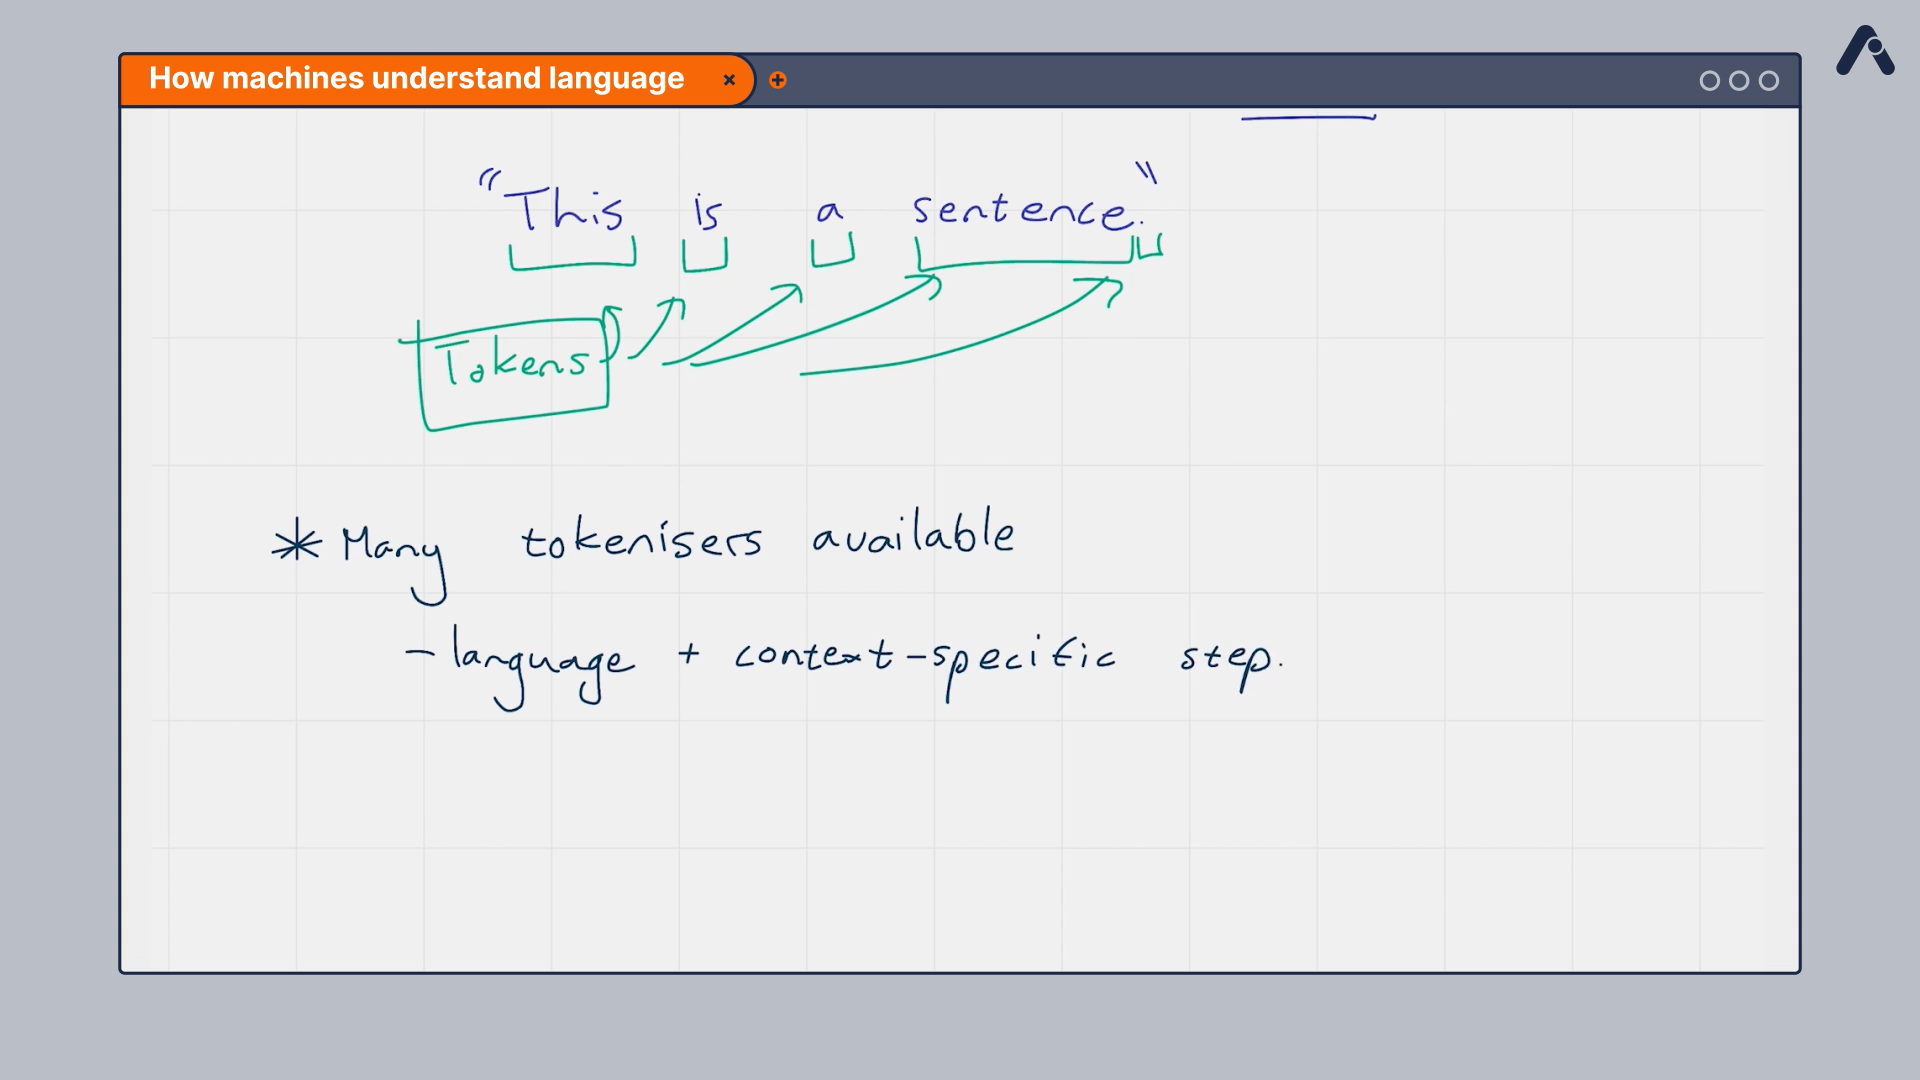 How machines understand language
"This is a sentence."
Tokens
* Many tokenisers available
- language + context-specific step.